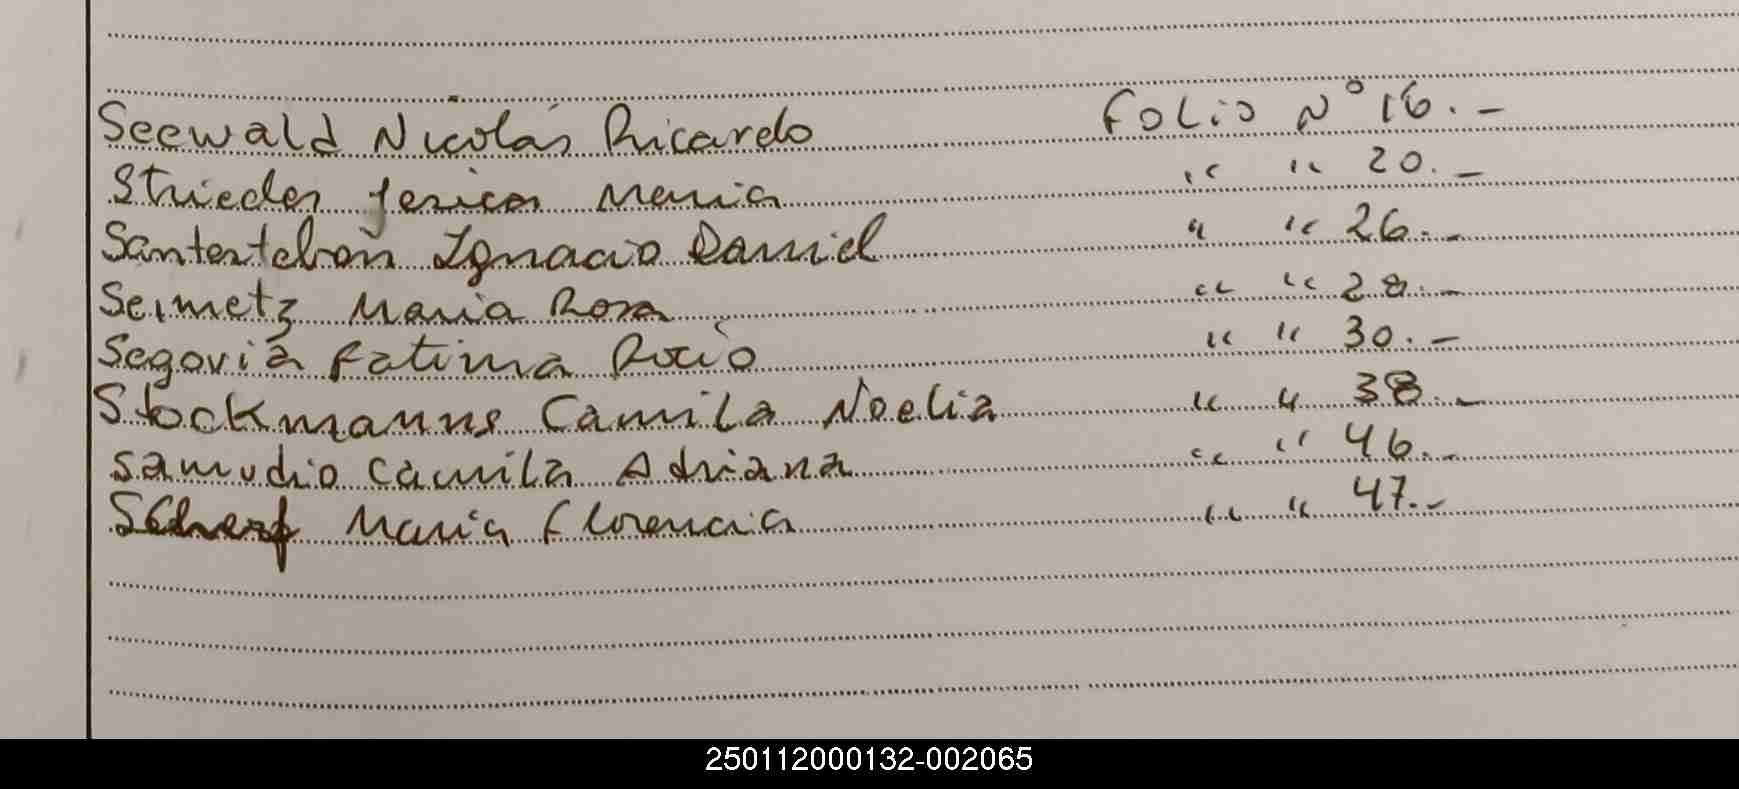 Seewald Nicolás Ricardo Folio N° 16.-
Strieder Jesica Maria " " 20.-
Santesteban Ignacio Daniel " " 26.-
Seimetz Maria Rosa " " 28.-
Segovia Fatima Rocio " " 30.-
Stockmanns Camila Noelia " " 38.-
Samudio Camila Adriana " " 46.-
Scherf Maria Florencia " " 47.-
250112000132-002065